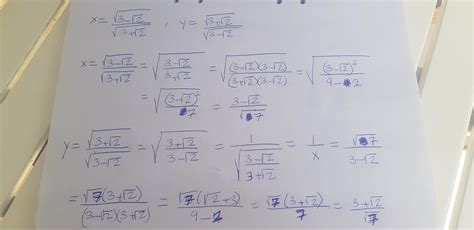 x = √(3-√2) / √(3+√2) , y = √(3+√2) / √(3-√2)
x = √(3-√2) / √(3+√2) = √((3-√2) / (3+√2)) = √((3-√2)(3-√2) / (3+√2)(3-√2)) = √((3-√2)² / 4-2)
= √((3-√2)² / 7) = (3-√2) / √7
y = √(3+√2) / √(3-√2) = √((3+√2) / (3-√2)) = 1 / √((3-√2) / (3+√2)) = 1 / x = √7 / (3-√2)
= √7(3+√2) / (3-√2)(3+√2) = √7(√2+3) / 4-2 = √7(3+√2) / 7 = (3+√2) / √7